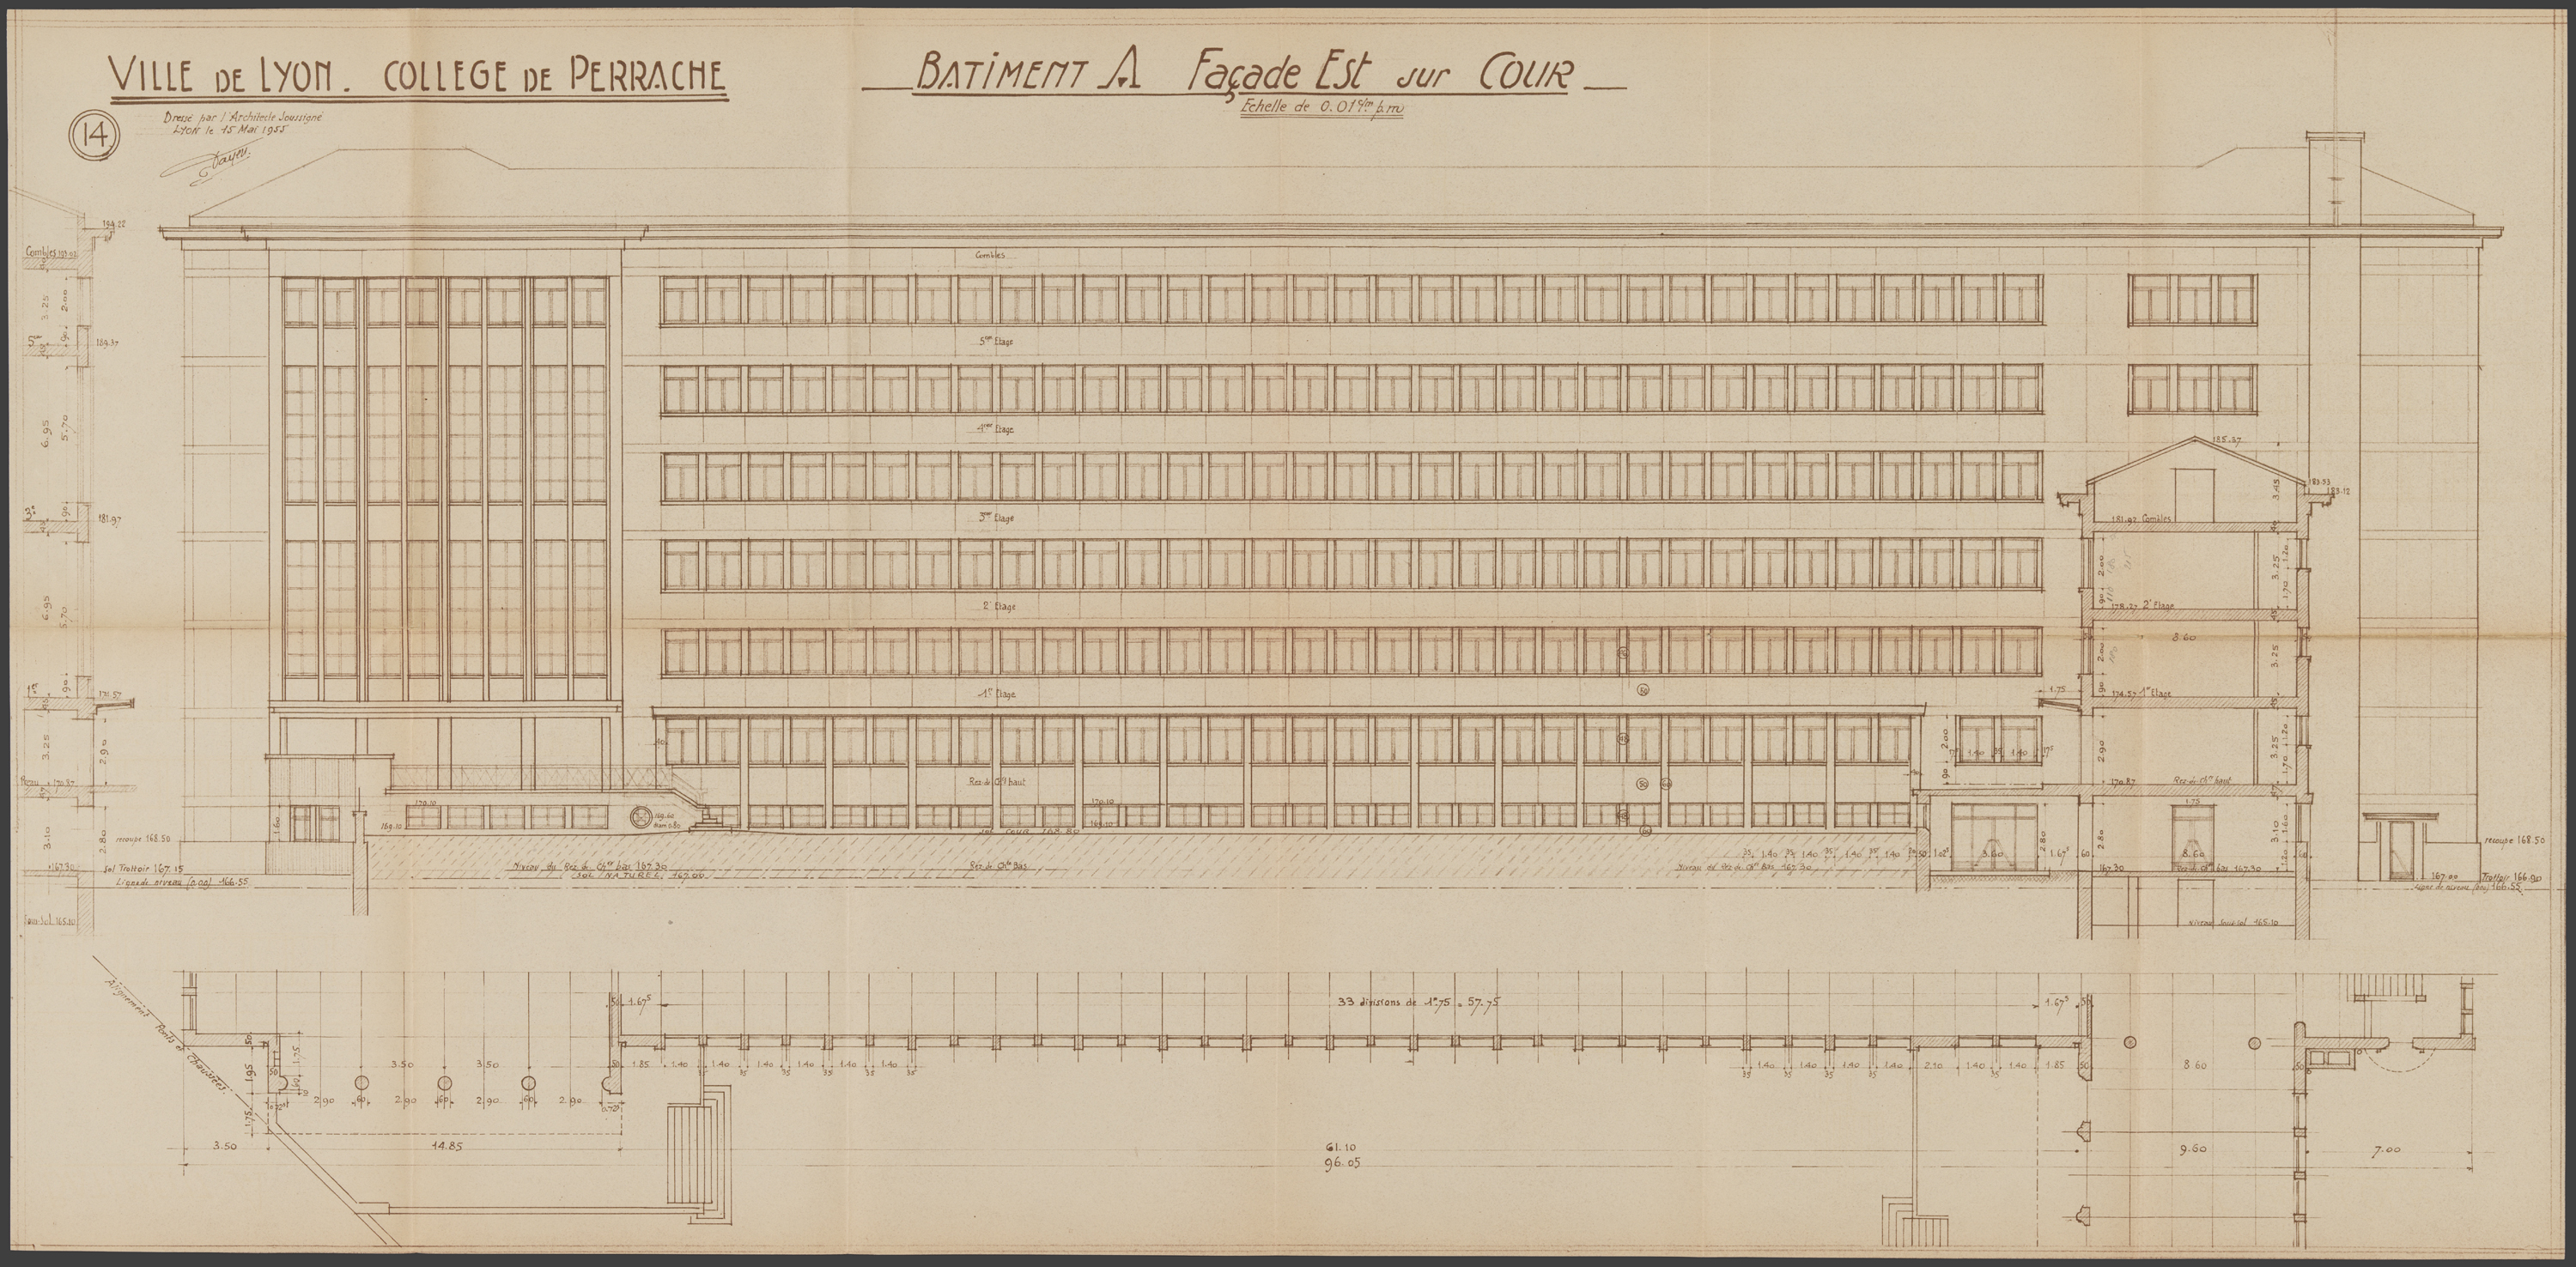 VILLE DE LYON. COLLEGE DE PERRACHE
BATIMENT A Façade Est sur COUR
Echelle de 0.01 c/m p.m
14
Dressé par l'Architecte soussigné
Lyon le 15 Mai 1955
194.22
Combles
3.25
2.00
90
5me
189.37
6.95
5.70
90
3e
181.97
6.95
5.70
90
1er
3.25
2.90
170.87
3.10
2.80
recoupe 168.50
167.30
Sol Trottoir 167.15
Ligne de niveau (0.00) 166.55
Sous-Sol 165.10
Combles
5me Etage
4me Etage
3me Etage
2e Etage
1er Etage
Rez-de-Chée haut
170.10
169.10
170.10
169.60
diam 0.80
1.60
Sol COUR 168.80
Niveau du Rez de Chée bas 167.30
SOL NATUREL 167.00
Rez-de-Chée Bas
Niveau du Rez de Chée Bas 167.30
35 1.40 35 1.40 35 1.40 35 1.40
3.60
1.67⁵
60
2.00
90
1.40 35 1.40
1.75
185.37
183.53
183.12
3.45
181.97 Combles
2.00
3.25
1.20
1.70
90
178.27 2e Etage
8.60
2.00
3.25
90
174.57 1er Etage
2.90
3.25
1.20
1.70
170.87
Rez-de-Chée haut
1.75
2.80
2.80
3.10
1.60
1.20
8.60
167.30
Rez-de-Chée bas 167.30
Niveau Sous-sol 165.10
recoupe 168.50
167.00
Trottoir 166.90
Ligne de niveau (0.00) 166.55
Alignement Ponts et Chaussées.
50
1.67⁵
33 divisions de 1m.75 = 57.75
1.67⁵
50
50
1.95
1.75
1.75
50
60
3.50
3.50
2.90 60 2.90 60 2.90 60 2.90
50 1.85 1.40 1.40 1.40 1.40 1.40 1.40
35 35 35 35 35
35 1.40 35 1.40 35 1.40 35 1.40 2.10 1.40 35 1.40 1.85 50
8.60
3.50
14.85
61.10
96.05
9.60
7.00